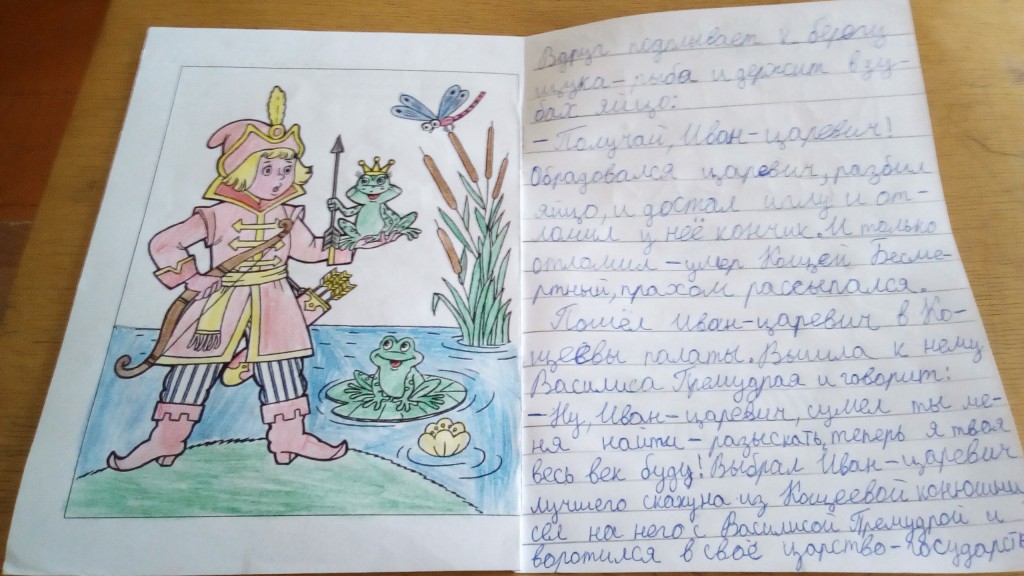 Вдруг подплывает к берегу
щука-рыба и держит в зу-
бах яйцо:
- Получай, Иван-царевич!
Обрадовался царевич, разбил
яйцо, и достал иглу и от-
ломил у неё кончик. И только
отломил - умер Кощей Бесме-
ртный, прахом рассыпался.
Пошёл Иван-царевич в Ко-
щеевы палаты. Вышла к нему
Василиса Премудрая и говорит:
- Ну, Иван-царевич, сумел ты ме-
ня найти - разыскать, теперь я твоя
весь век буду! Выбрал Иван-царевич
лучшего скакуна из Кощеевой конюшни
сел на него с Василисой Премудрой и
воротился в своё царство-государств